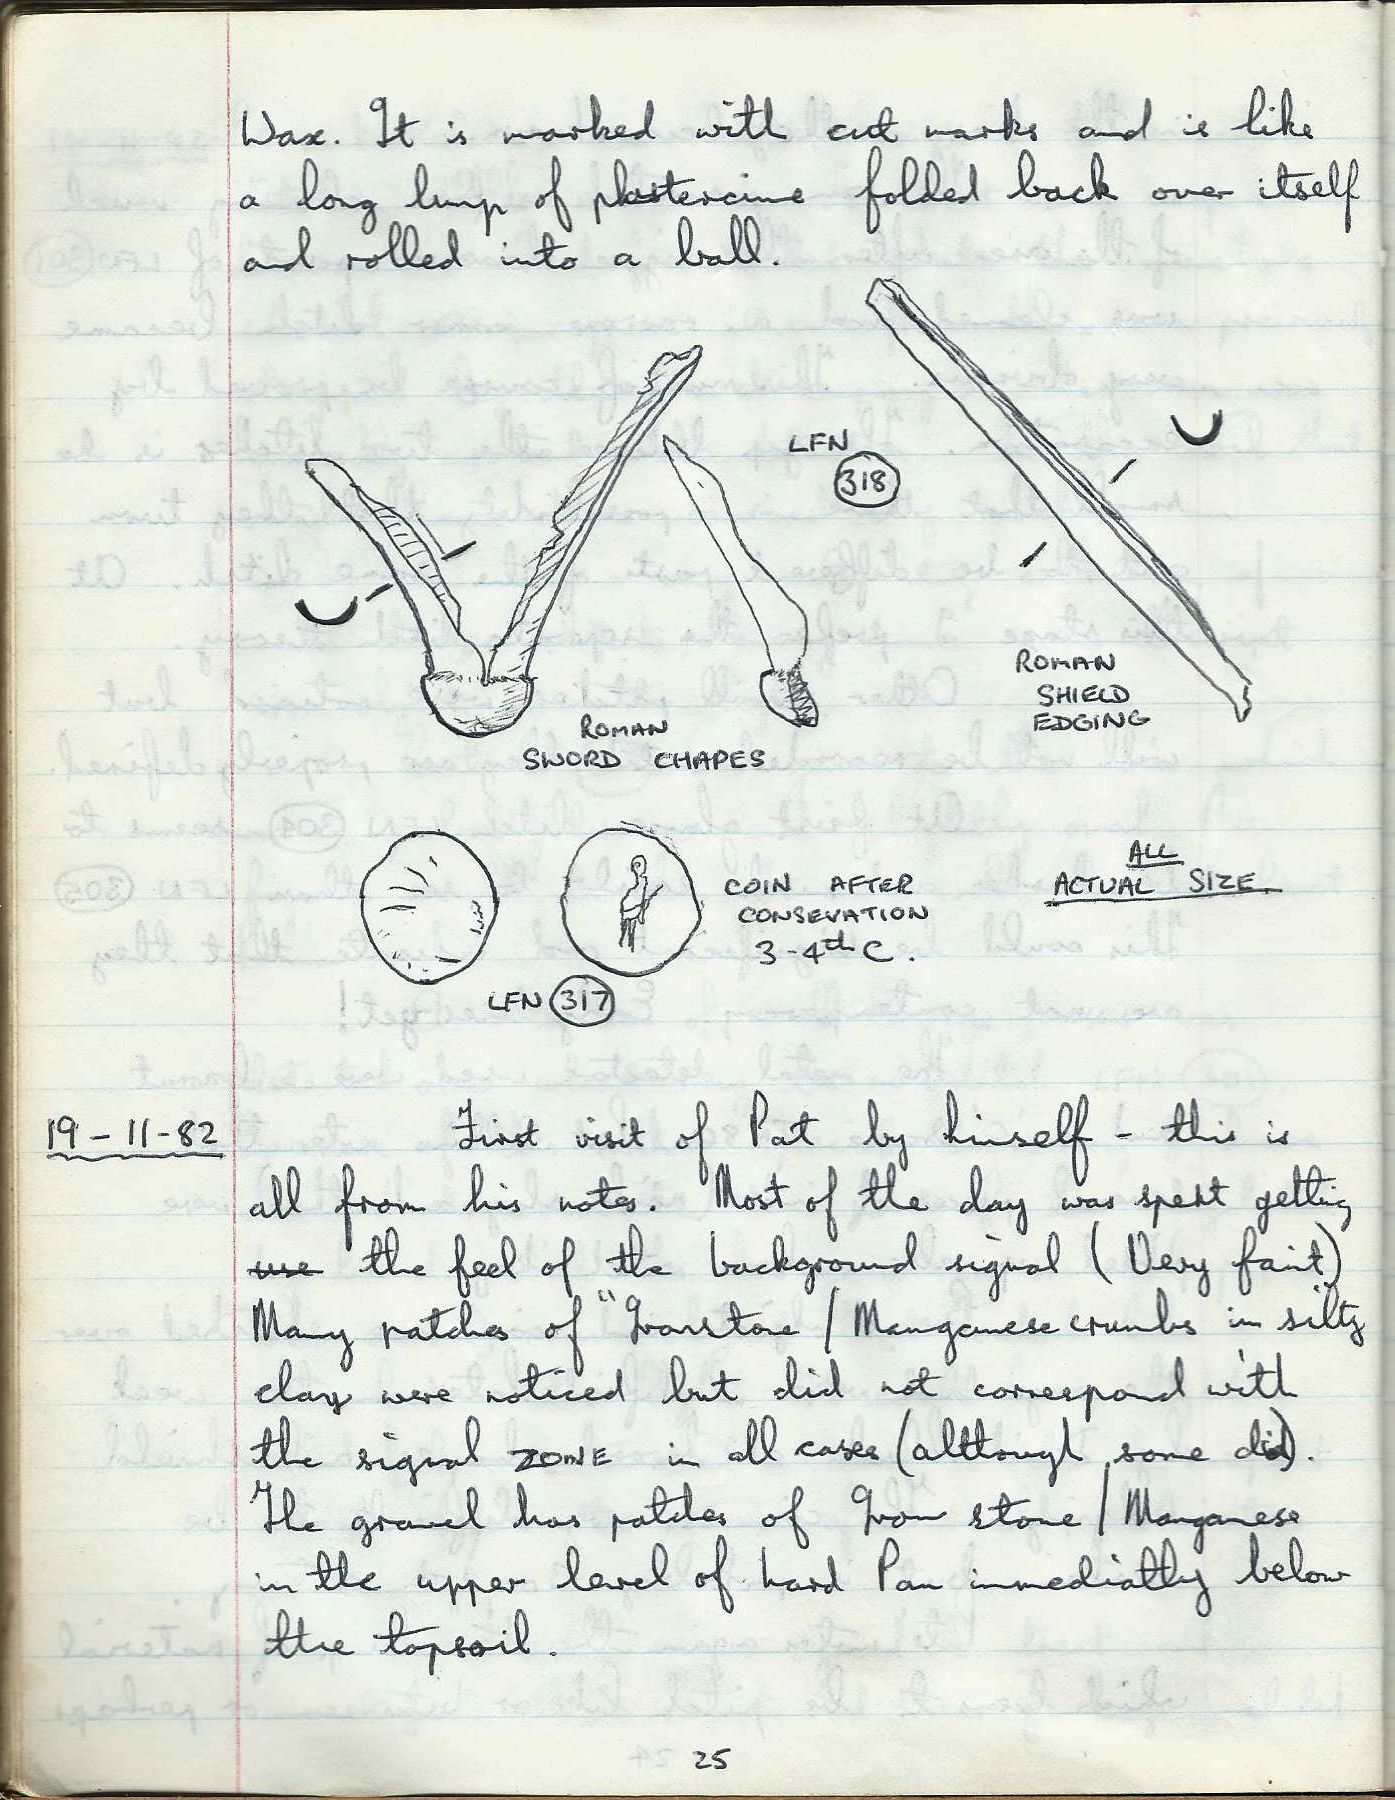 Wax. It is marked with cut marks and is like
a long lump of plastercine folded back over itself
and rolled into a ball.
LFN
318
ROMAN
SHIELD
EDGING
ROMAN
SWORD CHAPES
COIN AFTER
CONSEVATION
3-4th C.
ALL
ACTUAL SIZE
LFN 317
19-11-82
First visit of Pat by himself - this is
all from his notes. Most of the day was spent getting
use the feel of the background signal (Very faint)
Many patches of "Ironstone / Manganese crumbs in silty
clay were noticed but did not correspond with
the signal ZONE in all cases (although some did).
The gravel has patches of Iron stone / Manganese
in the upper level of hard Pan immediatly below
the topsoil.
25